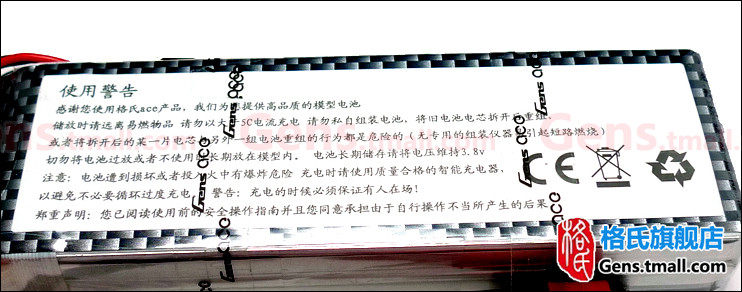 使用警告
感谢您使用格氏ace产品，我们为您提供高品质的模型电池
储放时请远离易燃物品 请勿以大于5C电流充电 请勿私自组装电池，将旧电池电芯拆开重组
或者将拆开后的某一片电芯与另外一组电池重组的行为都是危险的（无专用的组装仪器会引起短路燃烧）
切勿将电池过放或者不使用时长期放在模型内。 电池长期储存请将电压维持3.8v
注意：电池遭到损坏或者投入火中有爆炸危险 充电时请使用质量合格的智能充电器，
以避免不必要循环过度充电。警告：充电的时候必须保证有人在场！
郑重声明：您已阅读使用前的安全操作指南并且您同意承担由于自行操作不当所产生的后果
Gens ace
Gens ace
Gens ace
CE
Gens.tmall.com
格氏
格氏旗舰店
Gens.tmall.com